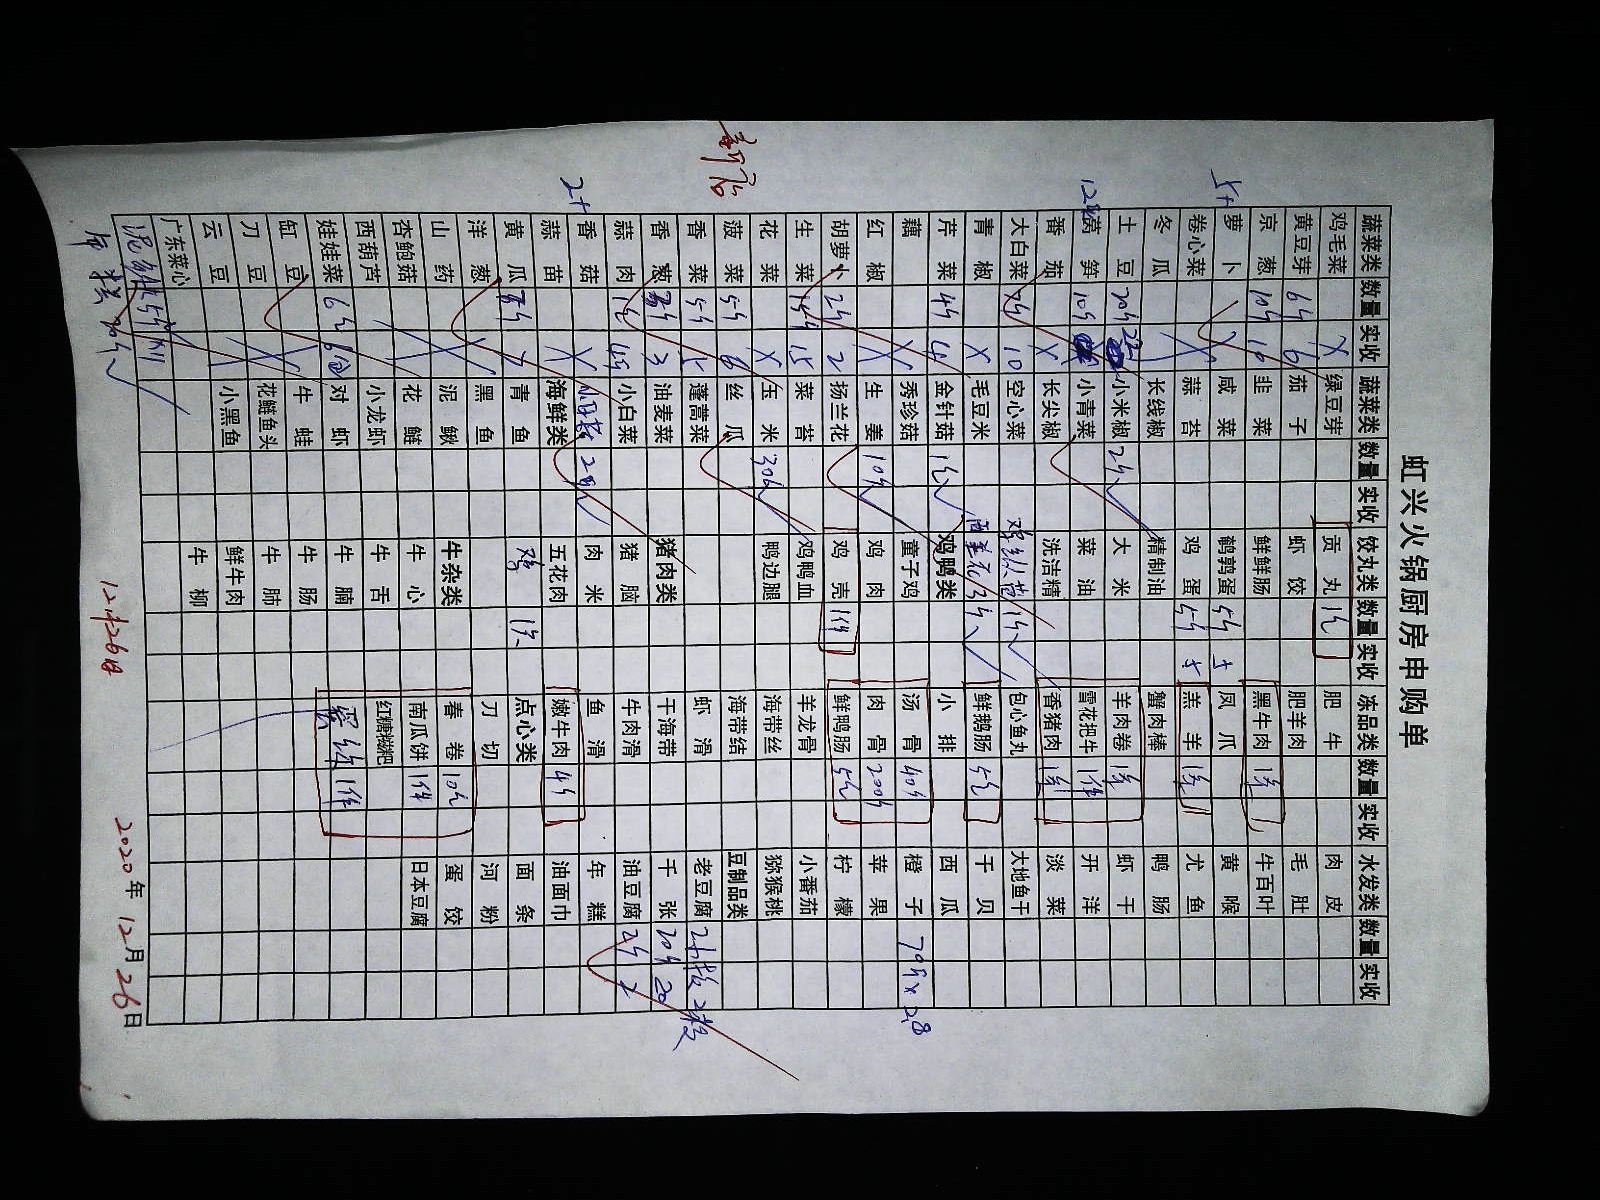 虹兴火锅厨房申购单
新店
蔬菜类 数量 实收 蔬菜类 数量 实收 饺丸类 数量 实收 冻品类 数量 实收 水发类 数量 实收
鸡毛菜 X 绿豆芽 贡丸 肥牛 肉皮
黄豆芽 6斤 6 茄子 虾饺 肥羊肉 毛肚
京葱 10斤 10 韭菜 鲜鲜肠 黑牛肉 牛百叶
萝卜 X 咸菜 鹌鹑蛋 5斤 5 凤爪 黄喉
卷心菜 蒜苔 鸡蛋 5斤 5 羔羊 尤鱼
冬瓜 长线椒 精制油 蟹肉棒 鸭肠
土豆 20斤 小米椒 2斤 大米 羊肉卷 虾干
莴笋 10斤 小青菜 菜油 雪花把牛 1件 开洋
番茄 X 长尖椒 洗洁精 香猪肉 淡菜
大白菜 10 空心菜 包心鱼丸 大地鱼干
青椒 X 毛豆米 鲜鹅肠 干贝
芹菜 4斤 4 金针菇 鸡鸭类 小排 西瓜
藕 X 秀珍菇 童子鸡 汤骨 40斤 橙子 70斤x2.8
红椒 X 生姜 10斤 鸡肉 肉骨 200斤 苹果
胡萝卜 2斤 2 扬兰花 鸡壳 1件 鲜鸭肠 柠檬
生菜 15斤 15 菜苔 鸡鸭血 羊龙骨 小番茄
花菜 X 玉米 鸭边腿 海带丝 猕猴桃
菠菜 5斤 6 丝瓜 海带结 豆制品类
香菜 5斤 5 蓬蒿菜 虾滑 老豆腐 2板 2板
香葱 3斤 3 油麦菜 猪肉类 干海带 千张 20斤 20
蒜肉 小白菜 猪脑 牛肉滑 油豆腐 2斤 2
香菇 X 肉米 鱼滑 年糕
蒜苗 海鲜类 五花肉 嫩牛肉 4斤 油面巾
黄瓜 青鱼 鸡 点心类 面条
洋葱 黑鱼 刀切 河粉
山药 泥鳅 牛杂类 春卷 蛋饺
杏鲍菇 花鲢 牛心 南瓜饼 1件 日本豆腐
西葫芦 小龙虾 牛舌 红糖糍粑
娃娃菜 对虾 牛腩 1件
缸豆 牛蛙 牛肠
刀豆 花鲢鱼头 牛肺
云豆 小黑鱼 鲜牛肉
广东菜心 牛柳
12月26日
2020年12月26日